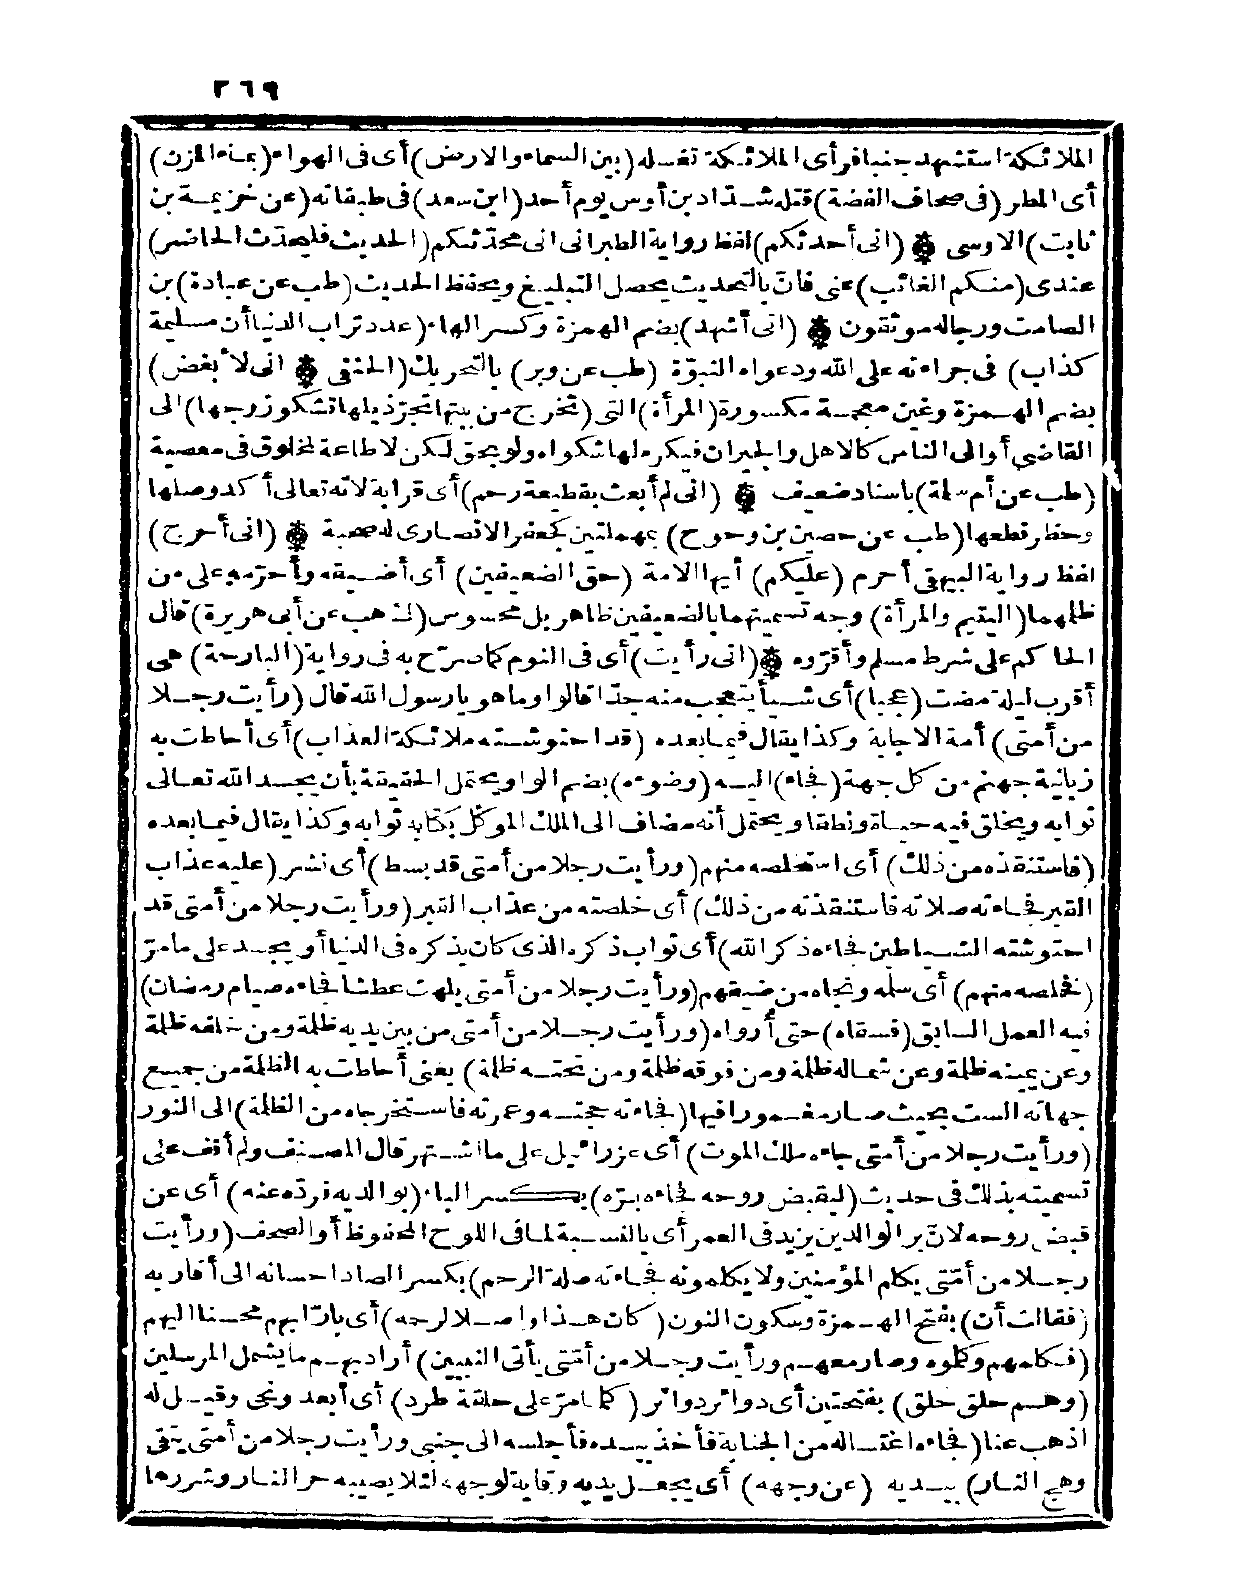 ٣٦٩
الملائكة استشهد جنبا فرأى الملائكة تغسله (بين السماء والارض) أى فى الهواء (بماء المزن)
أى المطر (فى صحاف الفضة) قتله شداد بن أوس يوم أحد (ابن سعد) فى طبقاته (عن خزيمة بن
ثابت) الاوسى ۞ (انى أحدثكم) لفظ رواية الطبرانى انى محدثكم (الحديث فليحدث الحاضر)
عندى (منكم الغائب) عنى فان بالتحديث يحصل التبليغ ويحفظ الحديث (طب عن عبادة) بن
الصامت ورجاله موثقون ۞ (انى أشهد) بضم الهمزة وكسر الهاء (عدد تراب الدنيا أن مسيلمة
كذاب) فى جراءته على الله ودعواه النبوّة (طب عن وبر) بالتحريك (الحنفى ۞ انى لأبغض)
بضم الهمزة وغين معجمة مكسورة (المرأة) التى (تخرج من بيتها تجرّ ذيلها تشكو زوجها) الى
القاضى أو الى الناس كالاهل والجيران فيكره لها شكواه ولو بحق لكن لا طاعة لمخلوق فى معصية
(طب عن أم سلمة) باسناد ضعيف ۞ (انى لم أبعث بقطيعة رحم) أى قرابة لانه تعالى أكد وصلها
وحظر قطعها (طب عن حصين بن وحوح) بمهملتين كجعفر الانصارى له صحبة ۞ (انى أحرج)
لفظ رواية البيهقى أحرم (عليكم) أيها الامة (حق الضعيفين) أى أضيقه وأحرّمه على من
ظلمهما (اليتيم والمرأة) وجه تسميتهما بالضعيفين ظاهر بل محسوس (ك هب عن أبى هريرة) قال
الحاكم على شرط مسلم وأقرّوه ۞ (انى رأيت) أى فى النوم كما صرّح به فى رواية (البارحة) هى
أقرب ليلة مضت (عجبا) أى شيأ يتعجب منه جدّا قالوا وما هو يا رسول الله قال (رأيت رجلا
من أمتى) أمة الاجابة وكذا يقال فيما بعده (قد احتوشته ملائكة العذاب) أى أحاطت به
زبانية جهنم من كل جهة (فجاء) اليه (وضوءه) بضم الواو يحتمل الحقيقة بأن يجسد الله تعالى
ثوابه ويخلق فيه حياة ونطقا ويحتمل أنه مضاف الى الملك الموكل بكتابه ثوابه وكذا يقال فيما بعده
(فاستنقذه من ذلك) أى استخلصه منهم (ورأيت رجلا من أمتى قد بسط) أى نشر (عليه عذاب
القبر فجاءته صلاته فاستنقذته من ذلك) أى خلصته من عذاب القبر (ورأيت رجلا من أمتى قد
احتوشته الشياطين فجاءه ذكر الله) أى ثواب ذكره الذى كان يذكره فى الدنيا أو يجسد على ما مرّ
(فخلصه منهم) أى سله ونجاه من ضيقهم (ورأيت رجلا من أمتى يلهث عطشا فجاءه صيام رمضان)
فيه العمل السابق (فسقاه) حتى أرواه (ورأيت رجلا من أمتى من بين يديه ظلمة ومن خلفه ظلمة
وعن يمينه ظلمة وعن شماله ظلمة ومن فوقه ظلمة ومن تحته ظلمة) يعنى أحاطت به الظلمة من جميع
جهاته الست بحيث صار مغمورا فيها (فجاءته حجته وعمرته فاستخرجاه من الظلمة) الى النور
(ورأيت رجلا من أمتى جاءه ملك الموت) أى عزرائيل على ما اشتهر قال المصنف ولم أقف على
تسميته بذلك فى حديث (ليقبض روحه فجاءه برّه) بكسر الباء (بوالديه فردّه عنه) أى عن
قبض روحه لانّ بر الوالدين يزيد فى العمر أى بالنسبة لما فى اللوح المحفوظ أو الصحف (ورأيت
رجلا من أمّتى يكلم المؤمنين ولا يكلمونه فجاءته صلة الرحم) بكسر الصاد احسانه الى أقاربه
(فقالت أن) بفتح الهمزة وسكون النون (كان هذا واصلا لرحمه) أى بارّا بهم محسنا اليهم
(فكلمهم وكلموه وصار معهم ورأيت رجلا من أمّتى يأتى النبيين) أراد بهم ما يشمل المرسلين
(وهم حلق حلق) بفتحتين أى دوائر دوائر (كلما مرّ على حلقة طرد) أى أبعد ونحى وقيل له
اذهب عنا (فجاءه اغتساله من الجنابة فأخذ بيده فأجلسه الى جنبى ورأيت رجلا من أمتى يتقى
وهج النار) بيديه (عن وجهه) أى يجعل يديه وقاية لوجهه لئلا يصيبه حر النار وشررها